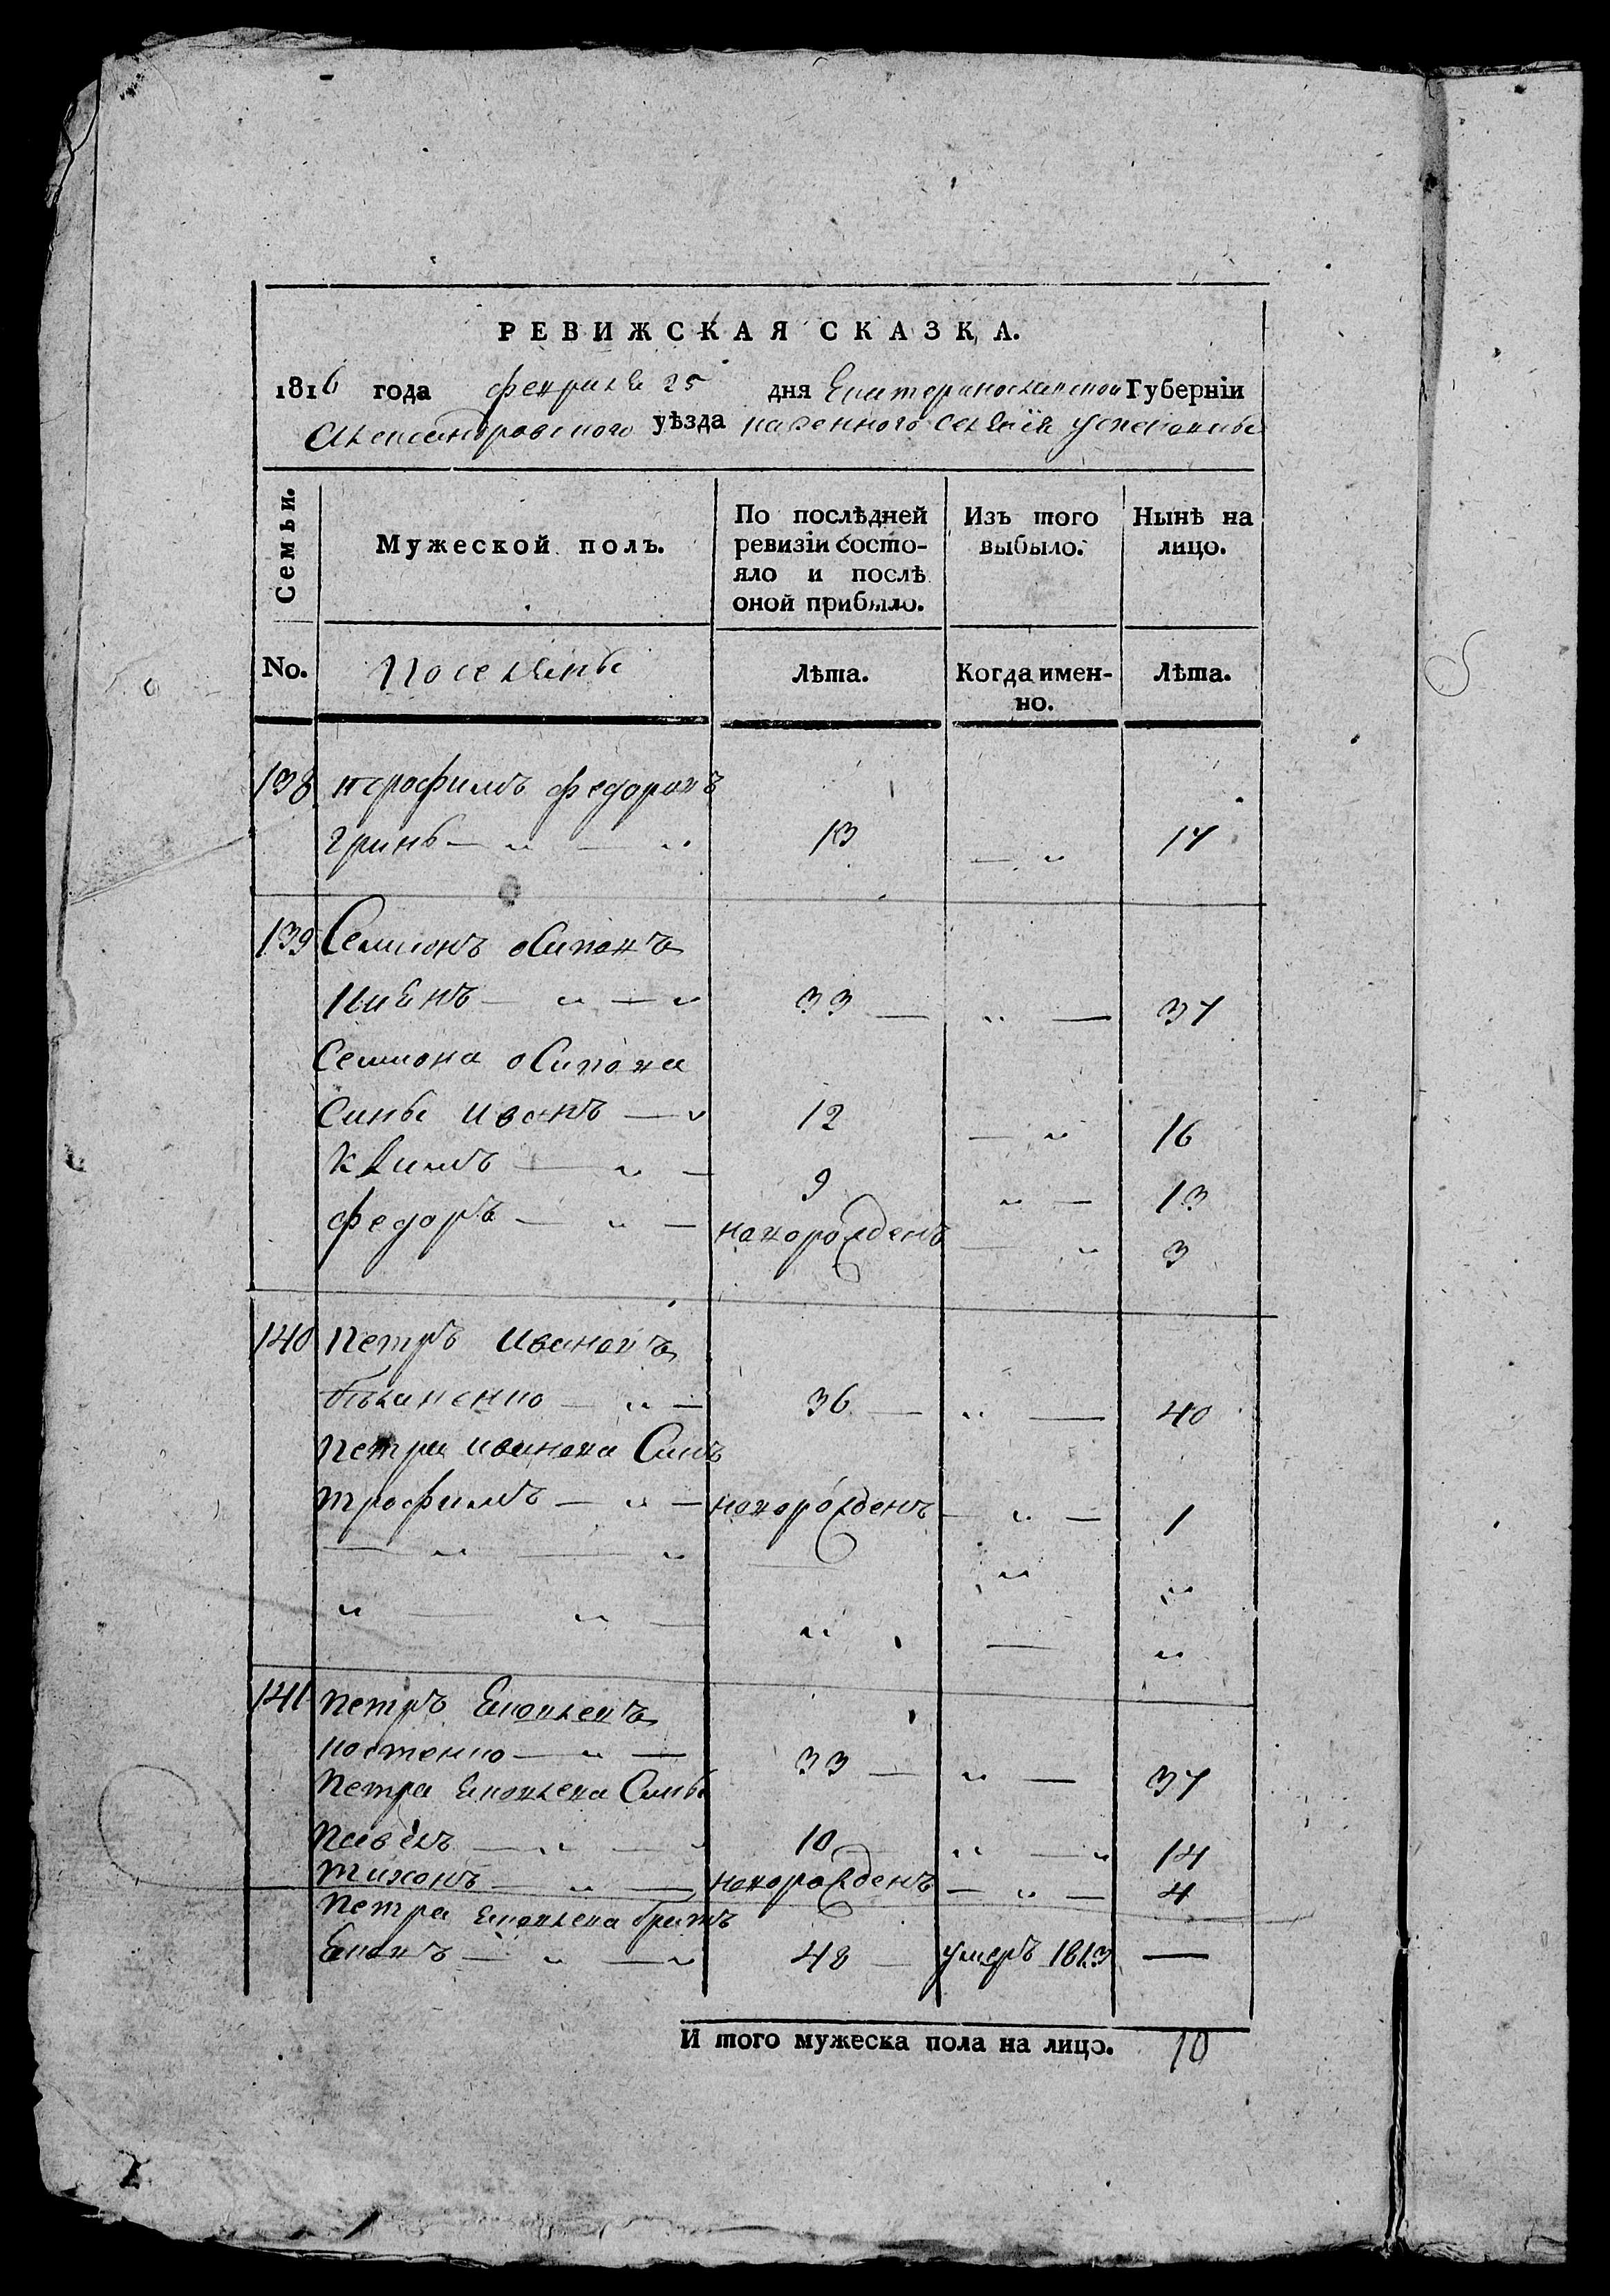 РЕВИЖСКАЯ СКАЗКА.
1816 года февраля 25 дня Екатеринославской Губерніи
Александровского уѣзда казенного селенія успеновки
Семьи. Мужеской полъ. По послѣдней ревизіи состояло и послѣ оной прибыло. Изъ того выбыло. Нынѣ на лицо.
No. Поселяне Лѣта. Когда именно. Лѣта.
138 терофимъ федоровъ
гринь — " — " 13 — " 17
139 Семионъ осиповъ
киянъ — " — " 33 — " — 37
Семиона осипова
сины иванъ — " 12 — " 16
климъ — " — 9 " — 13
федоръ — " — новорожденъ — " 3
140 петръ ивановъ
— " — 36 — " — 40
петра иванова синъ
трофимъ — " — новорожденъ — " — 1
— " — " — " "
" — " — " — "
141 петръ яковлевъ
костенко — " — 33 — " — 37
петра яковлева сины
павелъ — " — " 10 " — " 14
тихонъ — " — новорожденъ — " — 4
петра яковлева братъ
яковъ — " — " 48 — умеръ 1813 —
И того мужеска пола на лицо. 10